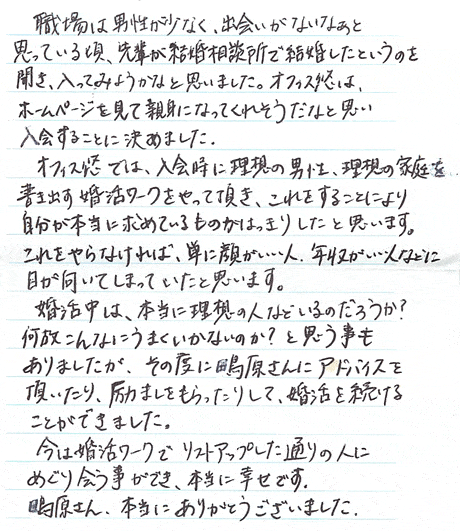 職場は男性が少なく、出会いがないなぁと
思っている頃、先輩が結婚相談所で結婚したというのを
聞き、入ってみようかなと思いました。オフィス悠は、
ホームページを見て親身になってくれそうだなと思い
入会することに決めました。
オフィス悠では、入会時に理想の男性、理想の家庭を…
書き出す婚活ワークをやって頂き、これをすることにより
自分が本当に求めているものがはっきりしたと思います。
これをやらなければ、単に顔がいい人、年収がいい人などに
目が向いてしまっていたと思います。
婚活中は、本当に理想の人などいるのだろうか?
何故こんなにうまくいかないのか?と思う事も
ありましたが、その度に鴫原さんにアドバイスを
頂いたり、励ましをもらったりして、婚活を続ける
ことができました。
今は婚活ワークでリストアップした通りの人に
めぐり会う事ができ、本当に幸せです。
鴫原さん、本当にありがとうございました。